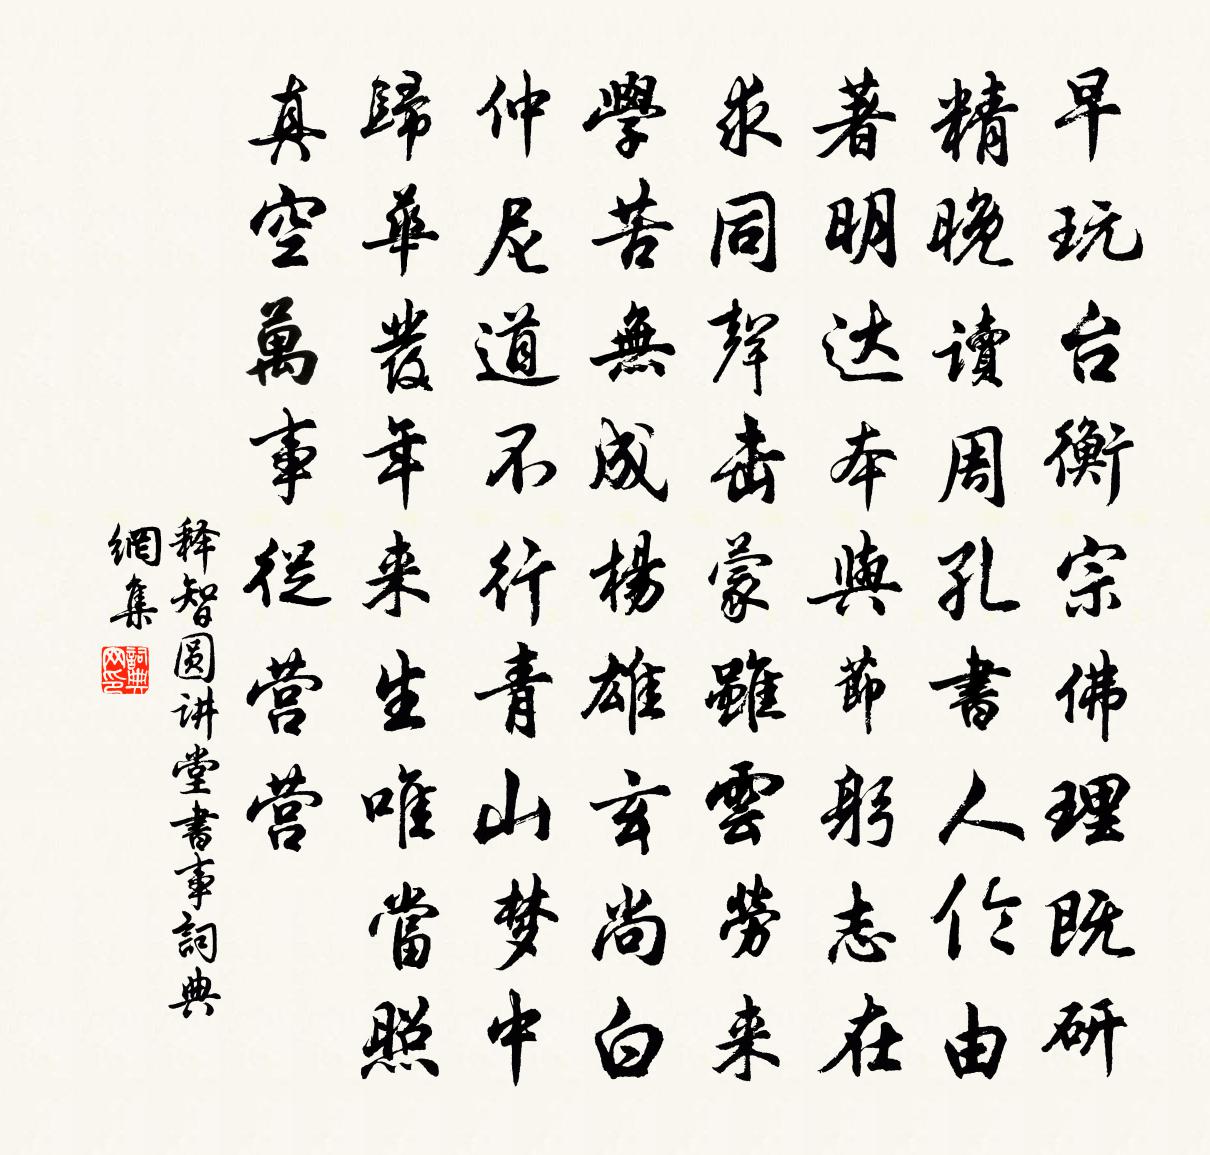 早玩台衡宗佛理既研
精晚讀周孔書人伦由
著明达本與節躬志在
求同聲击蒙雖雲勞来
學苦無成楊雄玄尚白
仲尼道不行青山梦中
歸華發年来生唯當照
真空萬事從营营
释智圆讲堂書事詞典
網集
詞典网印